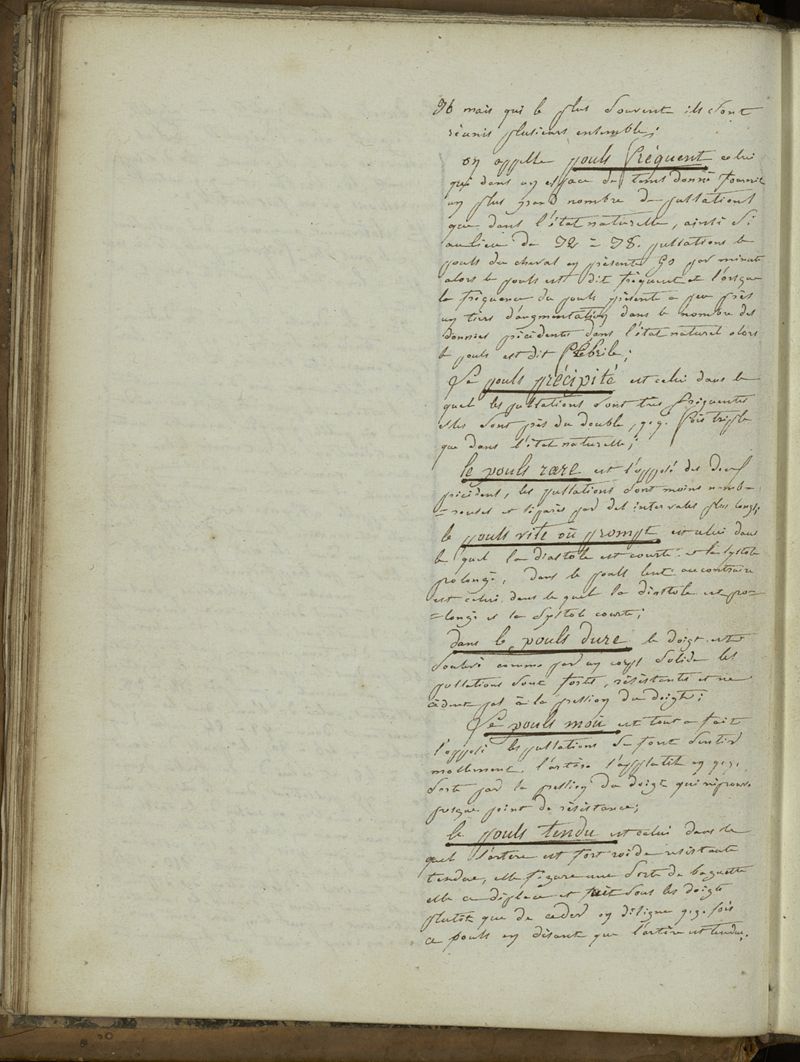 96 mais qui le plus souvent ils sont
réunis plusieurs ensemble;
on appelle pouls fréquent celui
qui dans un espace de tems donné fournit
un plus grand nombre de pulsations
que dans l'état naturelle, ainsi si
au lieu de 32 = 38. pulsations le
pouls du cheval en présente 50 par minute
alors le pouls est dit fréquent et l'orsque
la fréquence du pouls présente a peu près
un tiers d'augmentation dans le nombre des
données précédentes dans l'état naturel alors
le pouls est dit fébrile;
Le pouls précipité est celui dans le
quel les pulsations sont tres fréquentes
elles sont près du double, q.q. fois triple
que dans l'état naturelle;
le pouls rare est l'opposé des deux
précédent, les pulsations sont moins nomb-
=reuses et séparés par des intervales plus longs;
le pouls vite où prompt est celui dans
le quel la diastole est courte et la systole
prolongé, dans le pouls lent au contraire
est celui dans le quel la diastole est pro=
=longé et la systole courte;
dans le pouls dure le doigt est
soulevé comme par un corps solide les
pulsations sont fortes, résistantes et ne
cèdent pas à la pression du doigt;
Le pouls mou est tout a fait
l'opposé les pulsations se font sentir
mollement, l'artère s'applatit en q.q.
sorte par la pression du doigt qui n'éprouve
presque point de résistance;
le pouls tendu est celui dans le
quel l'artere est fort roide résistante
tendue, elle figure une sorte de baguette
elle se déplace et fuit sous les doigts
plutôt que de ceder on désigne q.q. fois
ce pouls en disant que l'artère est tendue.